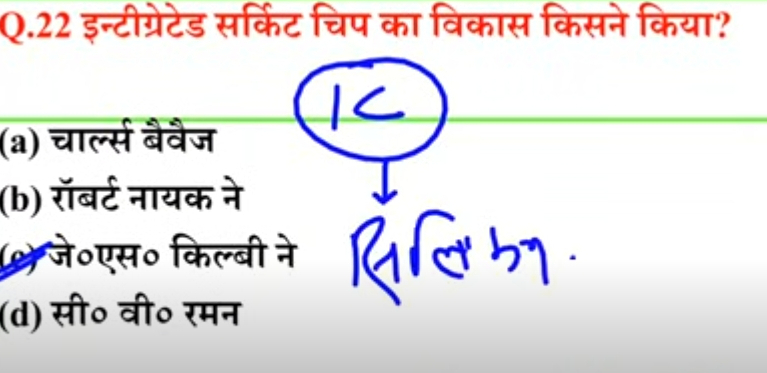 Q.22 इन्टीग्रेटेड सर्किट चिप का विकास किसने किया?
IC
(a) चार्ल्स बैवैज
(b) रॉबर्ट नायक ने
(c) जे०एस० किल्बी ने
(d) सी० वी० रमन